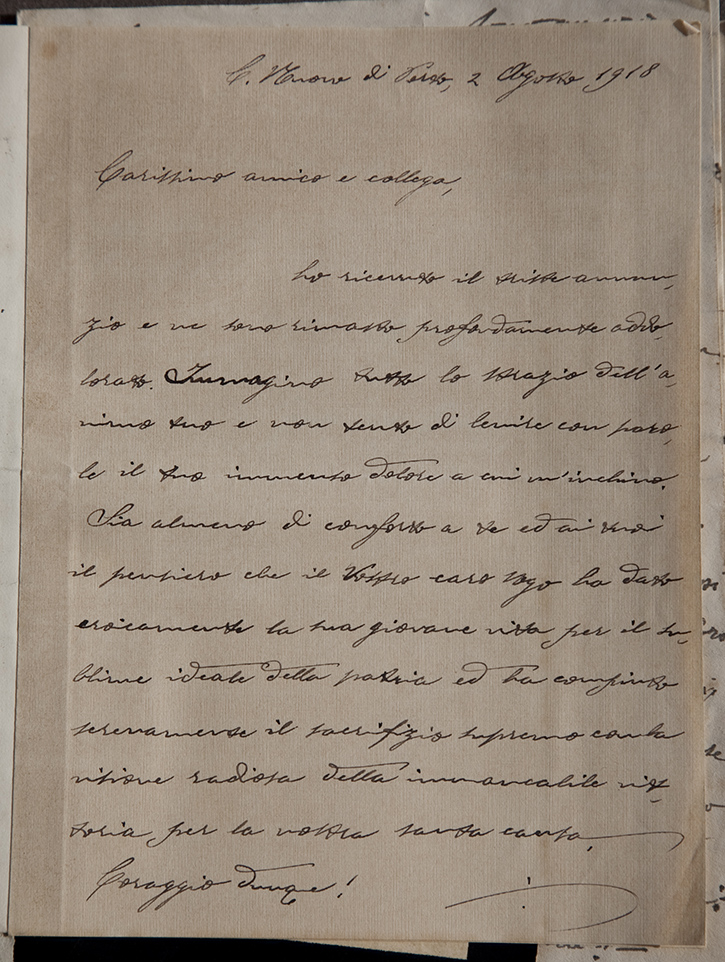 C. Nuovo di Porto, 2 Agosto 1918
Carissimo amico e collega,
ho ricevuto il triste annun-
zio e ne sono rimasto profondamente addo-
lorato. Immagino tutto lo strazio dell'a-
nimo tuo e non tento di lenire con paro-
le il tuo immenso dolore a cui m'inchino.
Sia almeno di conforto a te ed ai tuoi
il pensiero che il Vostro caro Ugo ha dato
eroicamente la sua giovane vita per il su-
blime ideale della patria ed ha compiuto
serenamente il sacrifizio supremo con la
visione radiosa della immancabile vit-
toria per la nostra santa causa.
Coraggio dunque!